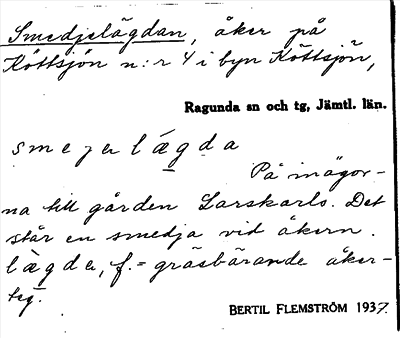 Smedjelägdan, åker på
Köttsjön n:r 4 i byn Köttsjön,
Ragunda sn och tg, Jämtl. län.
smejeɑlǽgda
På inägor-
na till gården Larskarls. Det
står en smedja vid åkern.
lägde, f. = gräsbärande åker-
teg.
BERTIL FLEMSTRÖM 1937.